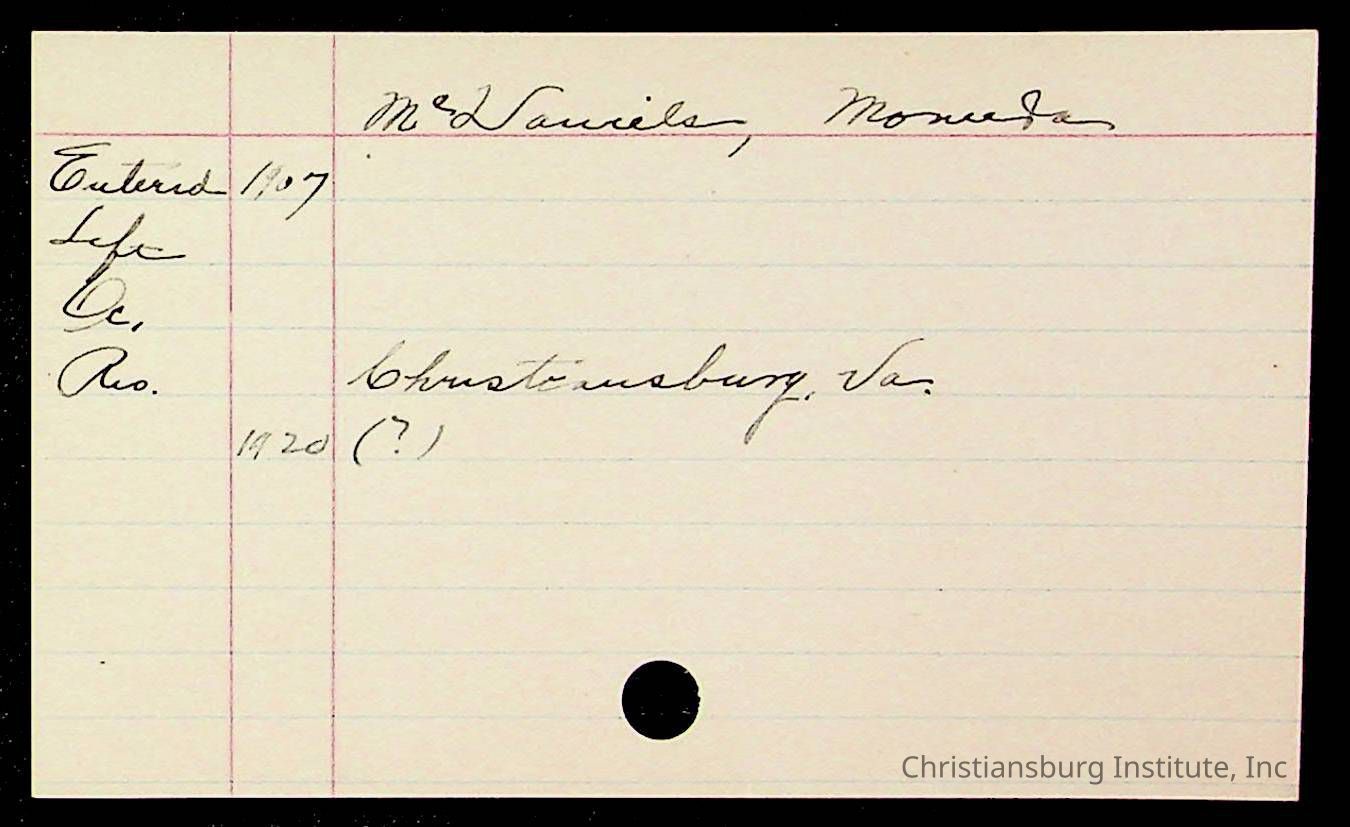 McDaniels, Moneda
Entered 1907
Left
Oc.
Res. Christiansburg, Va.
1920 (?)
Christiansburg Institute, Inc